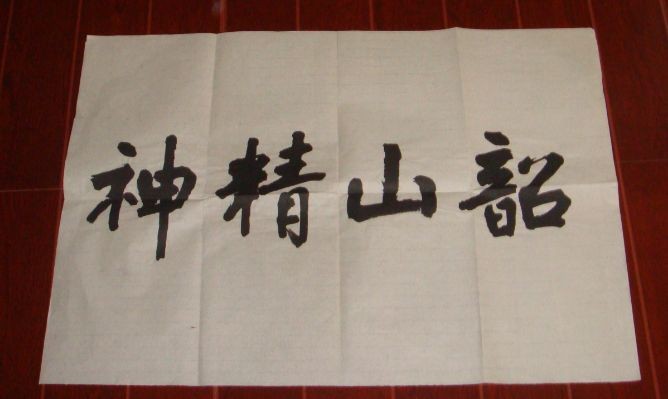 韶山精神